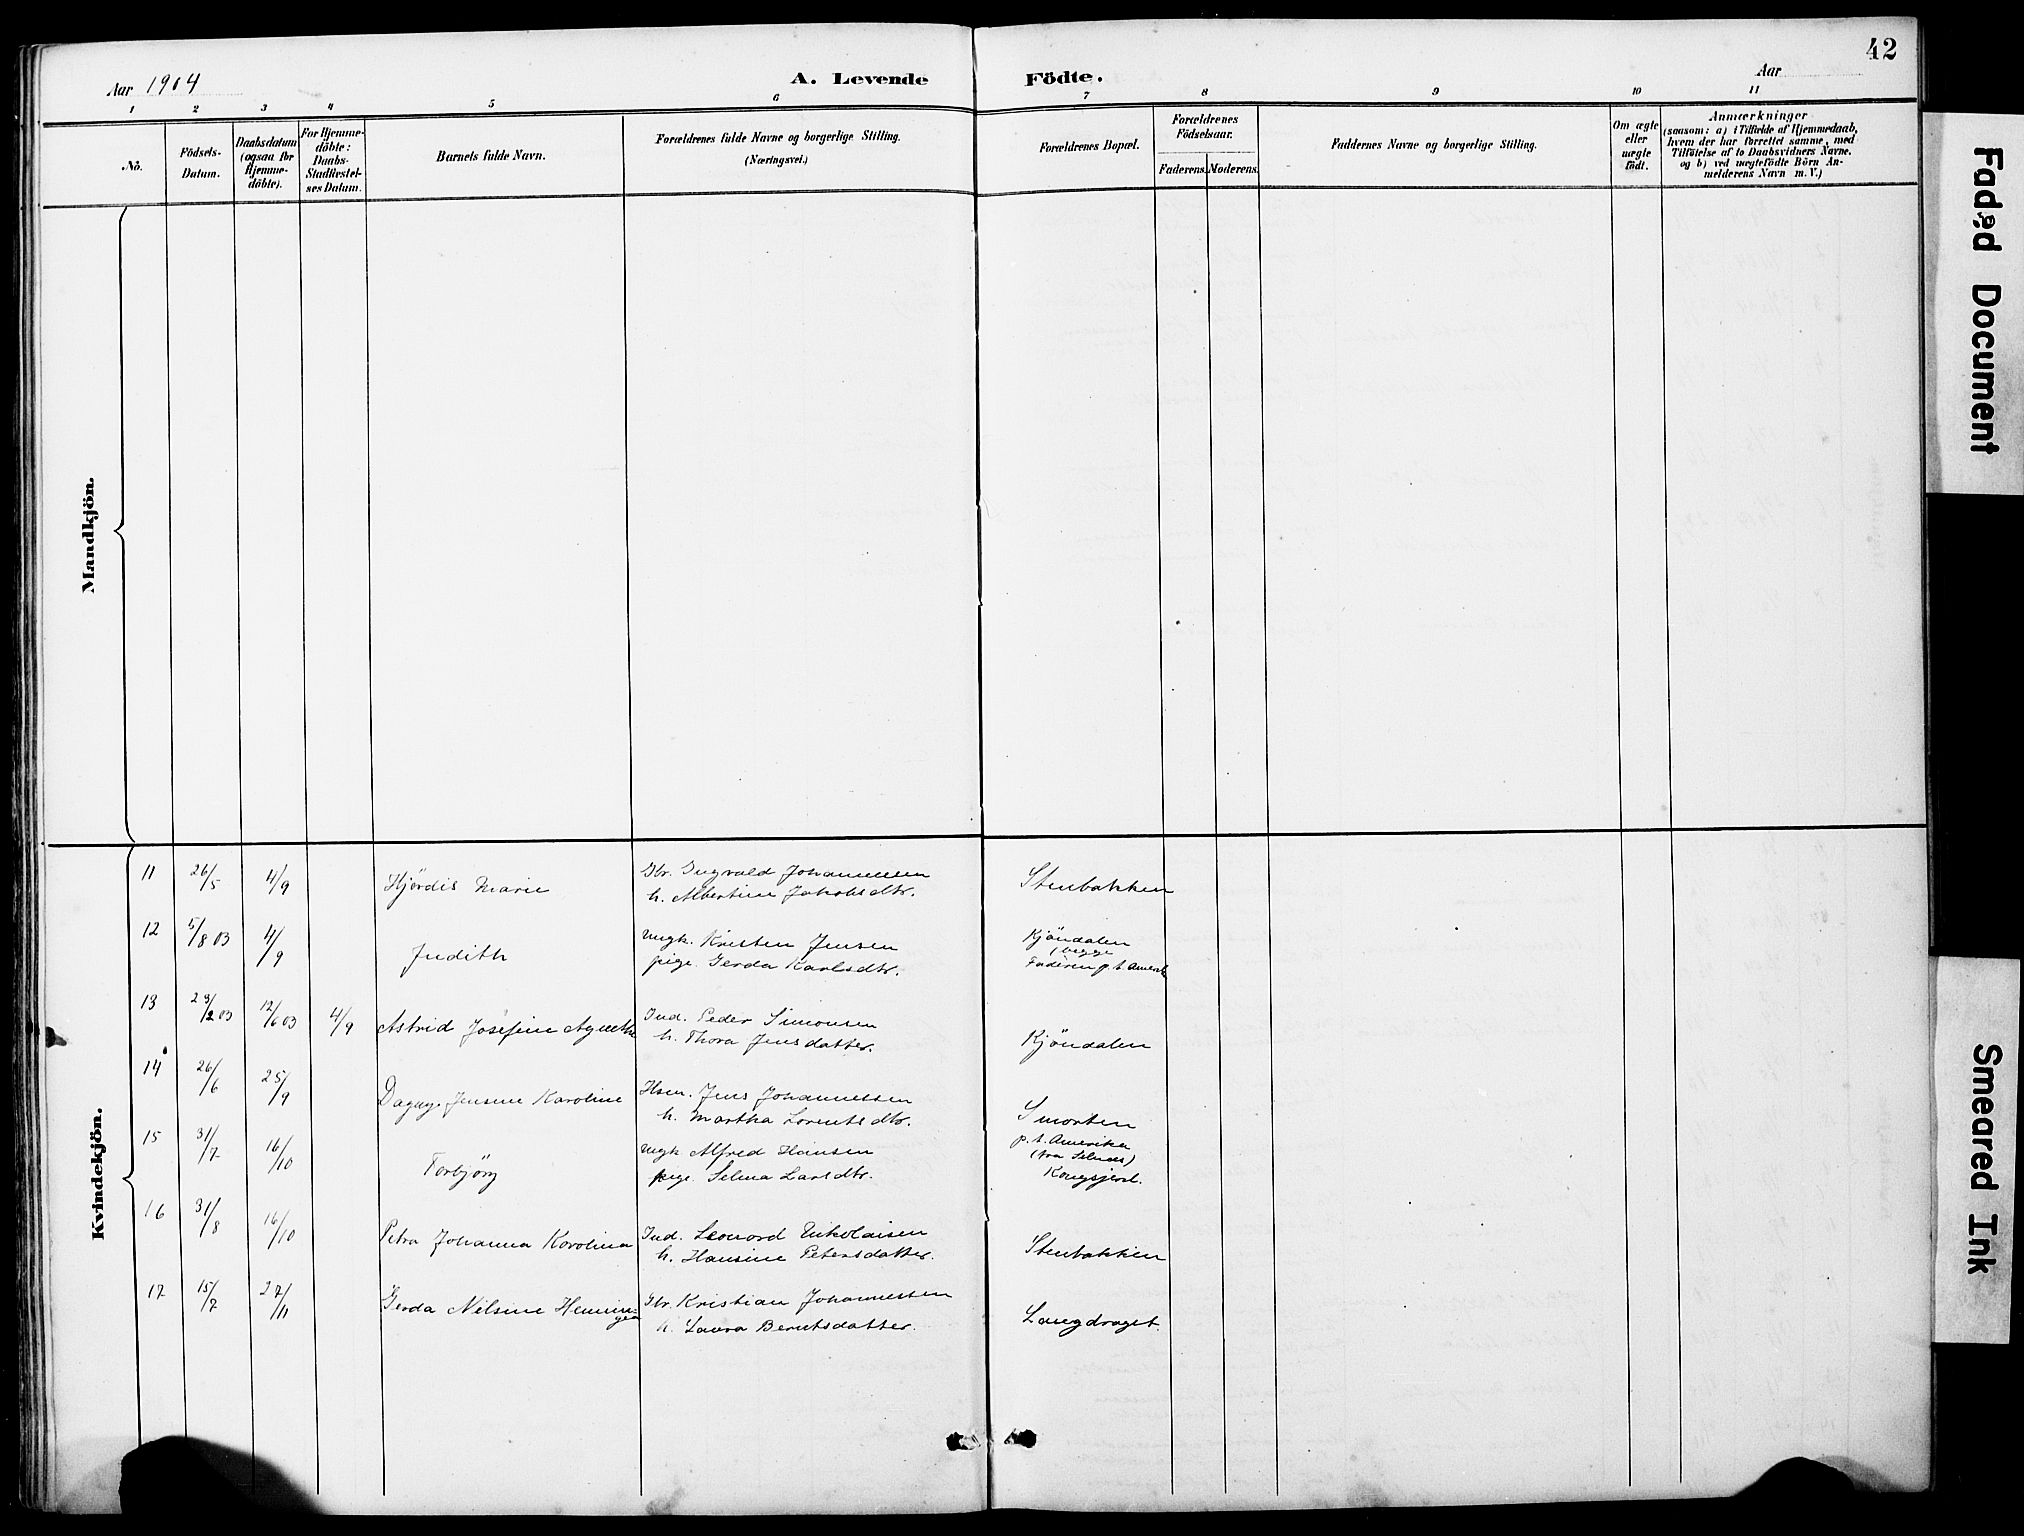 42
Aar 1904
A. Levende Födte.
Aar
1 2 3 4 5 6 7 8 9 10 11
No.
Födsels-
Datum.
Daabsdatum
(ogsaa for
Hjemme-
döbte).
For Hjemme-
döbte:
Daabs-
Stadfæstel-
ses Datum.
Barnets fulde Navn.
Forældrenes fulde Navne og borgerlige Stilling.
(Næringsvei.)
Forældrenes Bopæl.
Forældrenes
Födselsaar.
Faderens. Moderens.
Faddernes Navne og borgerlige Stilling.
Om ægte
eller
uægte
födt.
Anmærkninger
(saasom: a) i Tilfælde af Hjemmedaab,
hvem der har forrettet samme, med
Tilföielse af to Daabsvidners Navne.
og b) ved uægtefödte Börn An-
melderens Navn m. V.)
Mandkjön.
Kvindekjön.
11 26/5 4/9 Hjördis Marie
Gbr. Ingvald Johannessen
h. Albertine Jakobsdtr.
Stenbakken
12 5/8 03 4/9 Judith
Ungk. Kristen Jensen
pige Gerda Karlsdtr.
Kjöndalen
(begge
Faderen p. t. Amerik
13 23/2 03 12/6 03 4/9 Astrid Josefine Agnethe
Ind. Peder Simonsen
h. Thora Jensdatter.
Kjöndalen
14 26/6 25/9 Dagny Jensine Karoline
Hsm. Jens Johannessen
h. Martha Lorentsdtr.
Smorten
15 31/7 16/10 Torbjörg
Ungk Alfred Hansen
pige. Selma Larsdtr.
p. t. Amerika
(fra Selnes)
16 31/8 16/10 Petra Johanna Karolina
Ind. Leonord Nikolaisen
h. Hansine Petersdatter.
Stenbakken
17 15/7 27/11 Gerda Nilsine Hennin=
gea
Gbr. Kristian Johannessen
h. Laura Berntsdatter.
Langdraget.
Faded Document
Smeared Ink